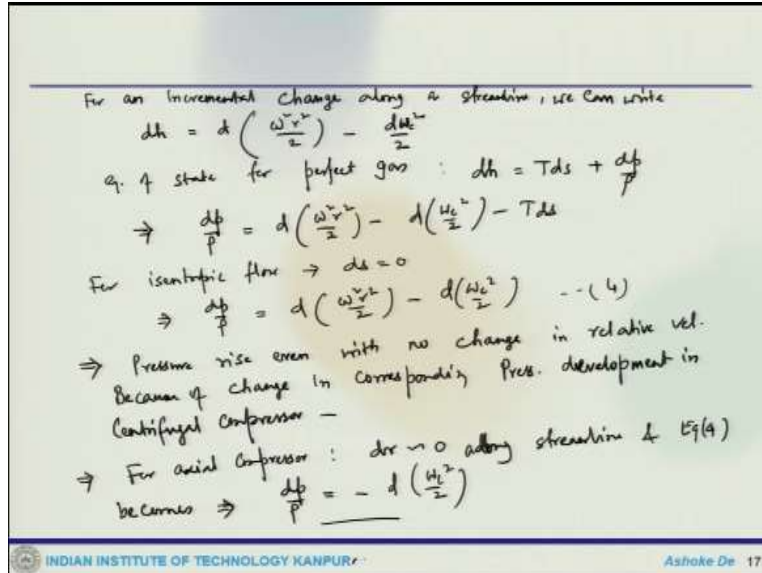 For an incremental change along a streamline, we can write
dh = d ( ω²r²/2 ) - dw_c²/2
Eq. of state for perfect gas : dh = Tds + dp/ρ
⇒ dp/ρ = d ( ω²r²/2 ) - d ( w_c²/2 ) - Tds
For isentropic flow → ds = 0
⇒ dp/ρ = d ( ω²r²/2 ) - d ( w_c²/2 ) --(4)
⇒ Pressure rise even with no change in relative vel.
Because of change in corresponding Press. development in
Centrifugal compressor -
⇒ For axial compressor : dr ~ 0 along streamline & Eq(4)
becomes ⇒ dp/ρ = - d ( w_c²/2 )
INDIAN INSTITUTE OF TECHNOLOGY KANPUR
Ashoke De 17